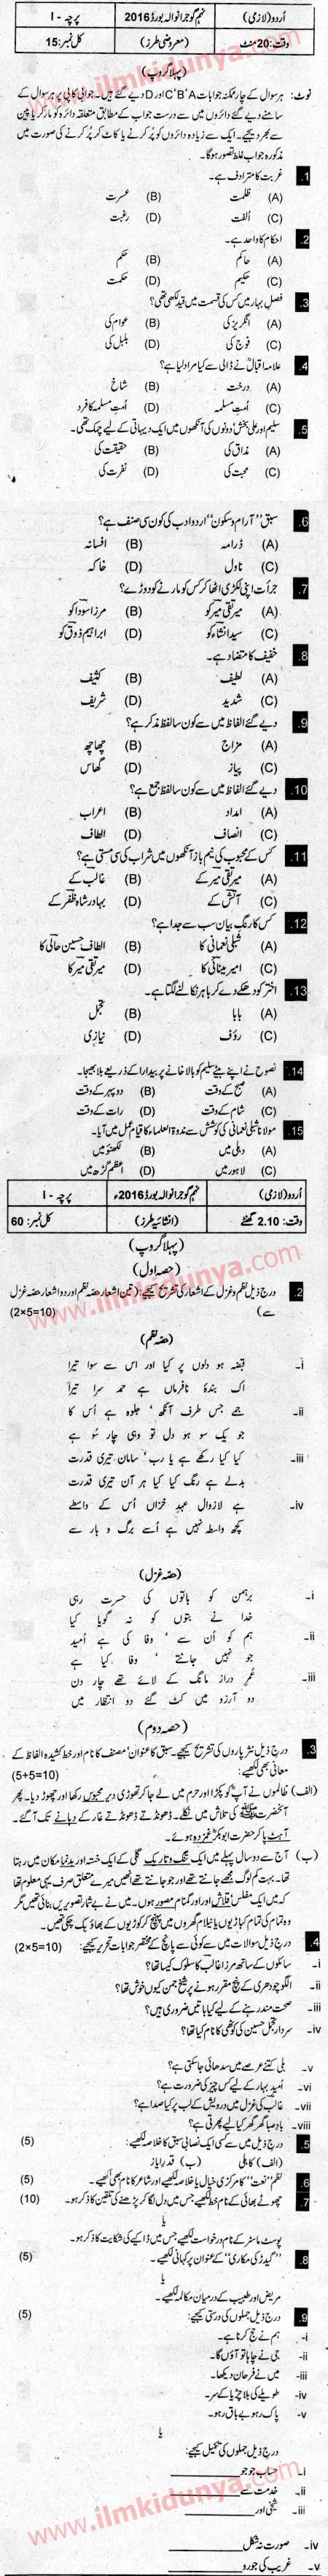 اُردو (لازمی) نہم گوجرانوالہ بورڈ 2016ء پرچہ - I
وقت: 20 منٹ (معروضی طرز) کل نمبر: 15
(پہلا گروپ)
نوٹ: ہر سوال کے چار ممکنہ جوابات A، B، C اور D دیے گئے ہیں۔ جوابی کاپی پر ہر سوال کے
سامنے دیے گئے دائروں میں سے درست جواب کے مطابق متعلقہ دائرہ کو مارکر یا پین
سے بھر دیجیے۔ ایک سے زیادہ دائروں کو پُر کرنے یا کاٹ کر پُر کرنے کی صورت میں
مذکورہ جواب غلط تصور ہوگا۔
1. غربت کا مترادف ہے۔
(A) ظلمت (B) عسرت
(C) اُلفت (D) رغبت
2. احکام کا واحد ہے۔
(A) حاکم (B) حکم
(C) حکیم (D) حکمت
3. فصلِ بہار میں کس کی قسمت میں قید لکھی تھی؟
(A) انگریز کی (B) عوام کی
(C) فوج کی (D) بلبل کی
4. علامہ اقبالؒ نے ڈالی سے کیا مراد لیا ہے؟
(A) درخت (B) شاخ
(C) اُمتِ مسلمہ (D) اُمتِ مسلمہ کا فرد
5. سلیم اور علی بخش دونوں کی آنکھوں میں ایک دیہاتی کے لیے چمک تھی۔
(A) مذاق کی (B) حقیقت کی
(C) محبت کی (D) نفرت کی
6. سبق "آرام و سکون" اردو ادب کی کون سی صنف ہے؟
(A) ڈرامہ (B) افسانہ
(C) ناول (D) خاکہ
7. جرأت اپنی لکڑی اٹھا کر کس کو مارنے کو دوڑے؟
(A) میر تقی میر کو (B) مرزا سودا کو
(C) سید انشاء کو (D) ابراہیم ذوق کو
8. خفیف کا متضاد ہے۔
(A) لطیف (B) کثیف
(C) شدید (D) شریف
9. دیے گئے الفاظ میں سے کون سا لفظ مذکر ہے؟
(A) مزاج (B) چھاچھ
(C) پیاز (D) گھاس
10. دیے گئے الفاظ میں سے کون سا لفظ جمع ہے؟
(A) امداد (B) اعراب
(C) انصاف (D) الطاف
11. کس کے محبوب کی نیم باز آنکھوں میں شراب کی سی مستی ہے؟
(A) میر تقی میر کے (B) غالب کے
(C) آتش کے (D) بہادر شاہ ظفر کے
12. کس کا رنگِ بیان سب سے جدا ہے؟
(A) شبلی نعمانی کا (B) الطاف حسین حالی کا
(C) امیر مینائی کا (D) میر تقی میر کا
13. اختر کو دھکے دے کر باہر نکالنے لگتا ہے۔
(A) بابا (B) تجمل
(C) رؤف (D) نیازی
14. نصوح نے اپنے بیٹے سلیم کو بالا خانے پر بیدارا کے ذریعے بلا بھیجا۔
(A) صبح کے وقت (B) دوپہر کے وقت
(C) شام کے وقت (D) رات کے وقت
15. مولانا شبلی نعمانی کی کوشش سے ندوۃ العلماء کا قیام عمل میں آیا۔
(A) دہلی میں (B) لکھنؤ میں
(C) لاہور میں (D) اعظم گڑھ میں
اُردو (لازمی) نہم گوجرانوالہ بورڈ 2016ء پرچہ - I
وقت: 2.10 گھنٹے (انشائیہ طرز) کل نمبر: 60
(پہلا گروپ)
(حصہ اول)
2. درج ذیل نظم و غزل کے اشعار کی تشریح کیجیے: (تین اشعار حصہ نظم اور دو اشعار حصہ غزل
سے) (2×5=10)
(حصہ نظم)
i- قبضہ ہو دلوں پر کیا اور اس سے سوا تیرا
اک بندۂ نافرماں ہے حمد سرا تیرا
ii- جمے جس طرف آنکھ، جلوہ ہے اُس کا
جو یک سو ہو دل تو وہی چار سُو ہے
iii- کیا کیا رکھے ہے یا رب، سامان تیری قدرت
بدلے ہے رنگ کیا کیا ہر آن تیری قدرت
iv- ہے لازوال عہدِ خزاں اُس کے واسطے
کچھ واسطہ نہیں ہے اُسے برگ و بار سے
(حصہ غزل)
i- برہمن کو باتوں کی حسرت رہی
خدا نے بتوں کو نہ گویا کیا
ii- ہم کو اُن سے، وفا کی ہے اُمید
جو نہیں جانتے، وفا کیا ہے
iii- عمرِ دراز مانگ کے لائے تھے چار دن
دو آرزو میں کٹ گئے دو انتظار میں
(حصہ دوم)
3. درج ذیل نثر پاروں کی تشریح کیجیے۔ سبق کا عنوان، مصنف کا نام اور خط کشیدہ الفاظ کے
معانی بھی لکھیے: (5+5=10)
(الف) ظالموں نے آپؐ کو پکڑا اور حرم میں لے جا کر تھوڑی دیر محبوس رکھا اور چھوڑ دیا۔ پھر
آنحضرت ﷺ کی تلاش میں نکلے۔ ڈھونڈتے ڈھونڈتے غار کے دہانے تک آ گئے۔
آہٹ پا کر حضرت ابوبکرؓ غمزدہ ہوئے۔
(ب) آج سے دو سال پہلے میں ایک تنگ و تاریک گلی کے ایک خستہ اور بدنما مکان میں رہتا
تھا۔ بہت کم لوگ مجھے جانتے تھے اور جو جانتے تھے انھیں میرے متعلق صرف یہی معلوم تھا
کہ میں ایک مفلس قلاش اور اور گمنام مصور ہوں۔ میں نے بے شمار تصویریں بنائی تھیں مگر
وہ تمام کی تمام کباڑیوں یا نیلام گھروں میں پہنچ کر کوڑیوں کے بھاؤ بک چکی تھیں۔
4. درج ذیل سوالات میں سے کوئی سے پانچ کے مختصر جوابات تحریر کیجیے: (2×5=10)
i- سائلوں کے ساتھ مرزا غالب کا سلوک کیسا تھا؟
ii- الگو چودھری کے پنچ مقرر ہونے پر شیخ جمن کیوں خوش تھا؟
iii- صحت مند رہنے کے لیے کیا باتیں ضروری ہیں؟
iv- سردار تجمل حسین کی کوٹھی کا نام کیا تھا؟
v- بلی کتنے عرصے میں سدھائی جا سکتی ہے؟
vi- اُمیدِ بہار کے لیے کس چیز کی ضرورت ہے؟
vii- غالب کی غزل میں درویش کے لب پر کیا صدا ہے؟
viii- بادِ صبا گھر گھر کیا لیے پھرتی ہے؟
5. درج ذیل میں سے کسی ایک نصابی سبق کا خلاصہ لکھیے: (5)
(الف) کاہلی (ب) قدرِ ایاز
6. نظم "نعت" کا مرکزی خیال یا خلاصہ لکھیے اور شاعر کا نام بھی لکھیے۔ (5)
7. چھوٹے بھائی کے نام خط لکھیے جس میں دل لگا کر پڑھنے کی تلقین کا ذکر ہو۔ (10)
یا
پوسٹ ماسٹر کے نام درخواست لکھیے جس میں ڈاکیے کی شکایت کا ذکر ہو۔
8. "گیدڑ کی مکاری" کے عنوان پر کہانی لکھیے۔ (5)
یا
مریض اور طبیب کے درمیان مکالمہ لکھیے۔
9. درج ذیل جملوں کی درستی کیجیے: (5)
i- ہم نے حج کرنا ہے۔
ii- جی نے چاہا تو آؤں گا۔
iii- میں نے فرحان دیکھا۔
iv- طویلے کی بلا چڑیا کے سر۔
v- پاک رہو بے باق رہو۔
یا
درج ذیل جملوں کی تکمیل کیجیے:
i- حساب جو جو
ii- خدمت سے
iii- شیخی اور
iv- صورت نہ شکل
v- غریب کی جورو
www.ilmkidunya.com